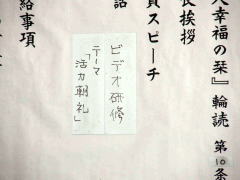 人幸福の栞』輪読 第10条
長挨拶
員スピーチ
話
ビデオ研修
テーマ
「活力朝礼」
絡事項